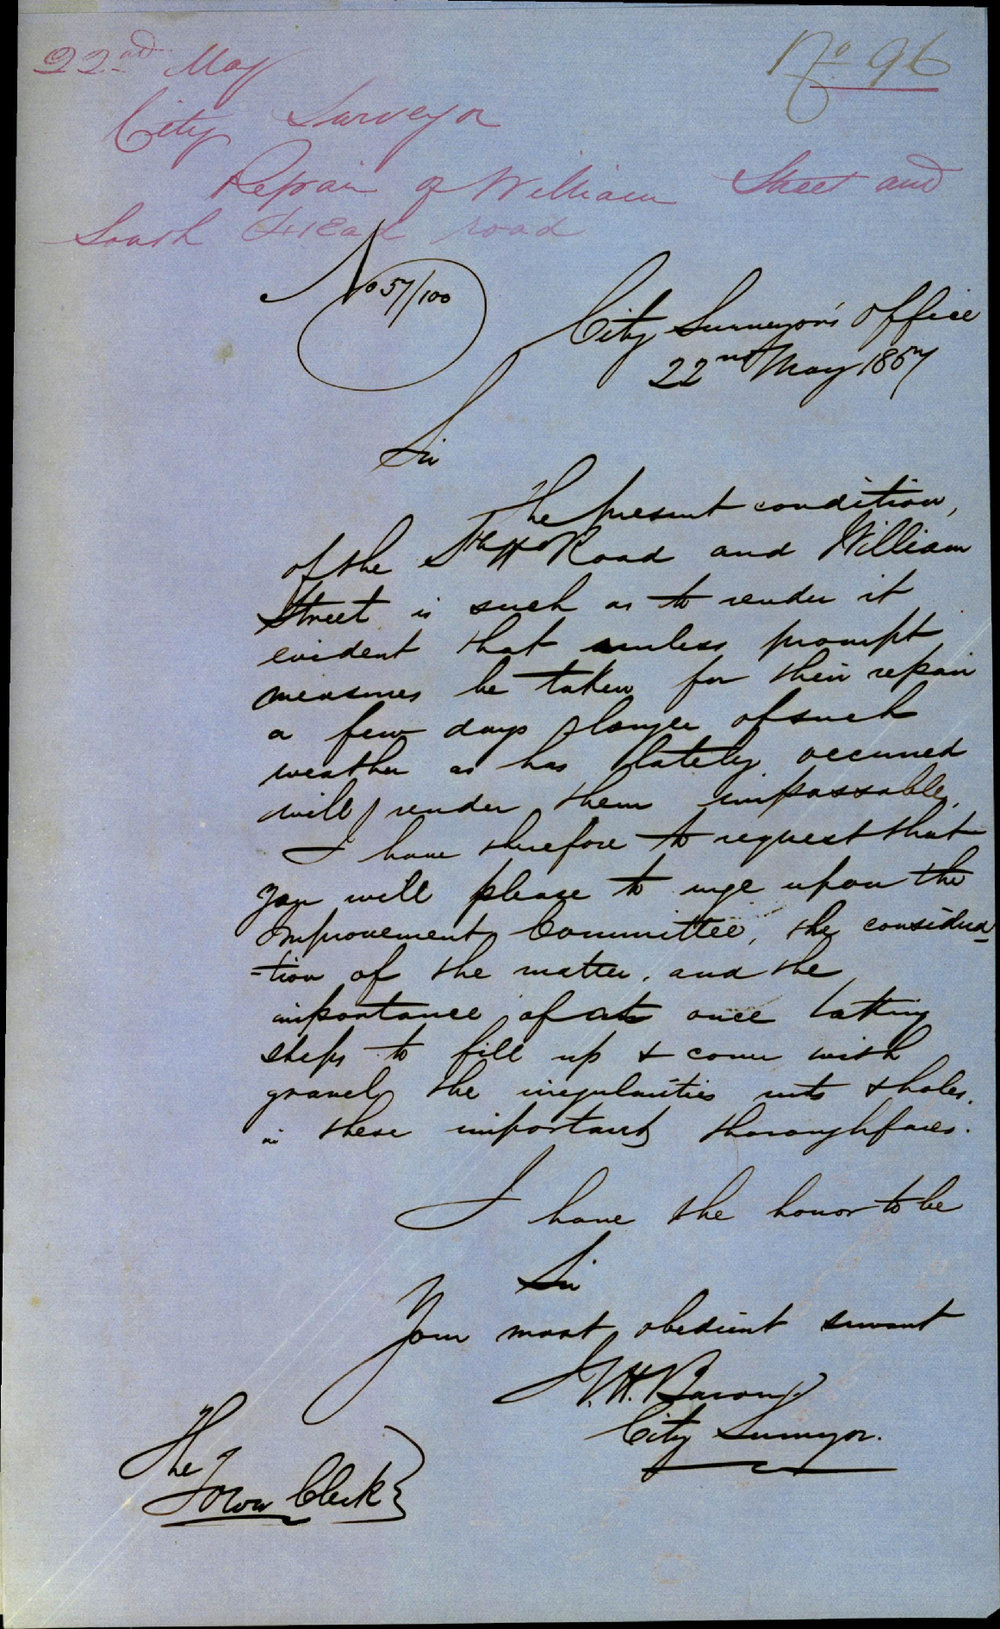 22nd May
No 96
City Surveyor
Repair of William Street and
South Head road
No 57/100
City Surveyor's Office
22nd May 1857
Sir
The present condition,
of the Sth Hd Road and William
Street is such as to render it
evident that unless prompt
measures be taken for their repair
a few days longer of such
weather as has lately occurred
will render them impassable.
I have therefore to request that
you will please to urge upon the
Improvement Committee, the considera-
-tion of the matter, and the
importance of at once taking
steps to fill up & cover with
gravel the irregularities ruts & holes.
in these important thoroughfares.
I have the honor to be
Sir
Your most obedient servant
City Surveyor.
The
Town Clerk